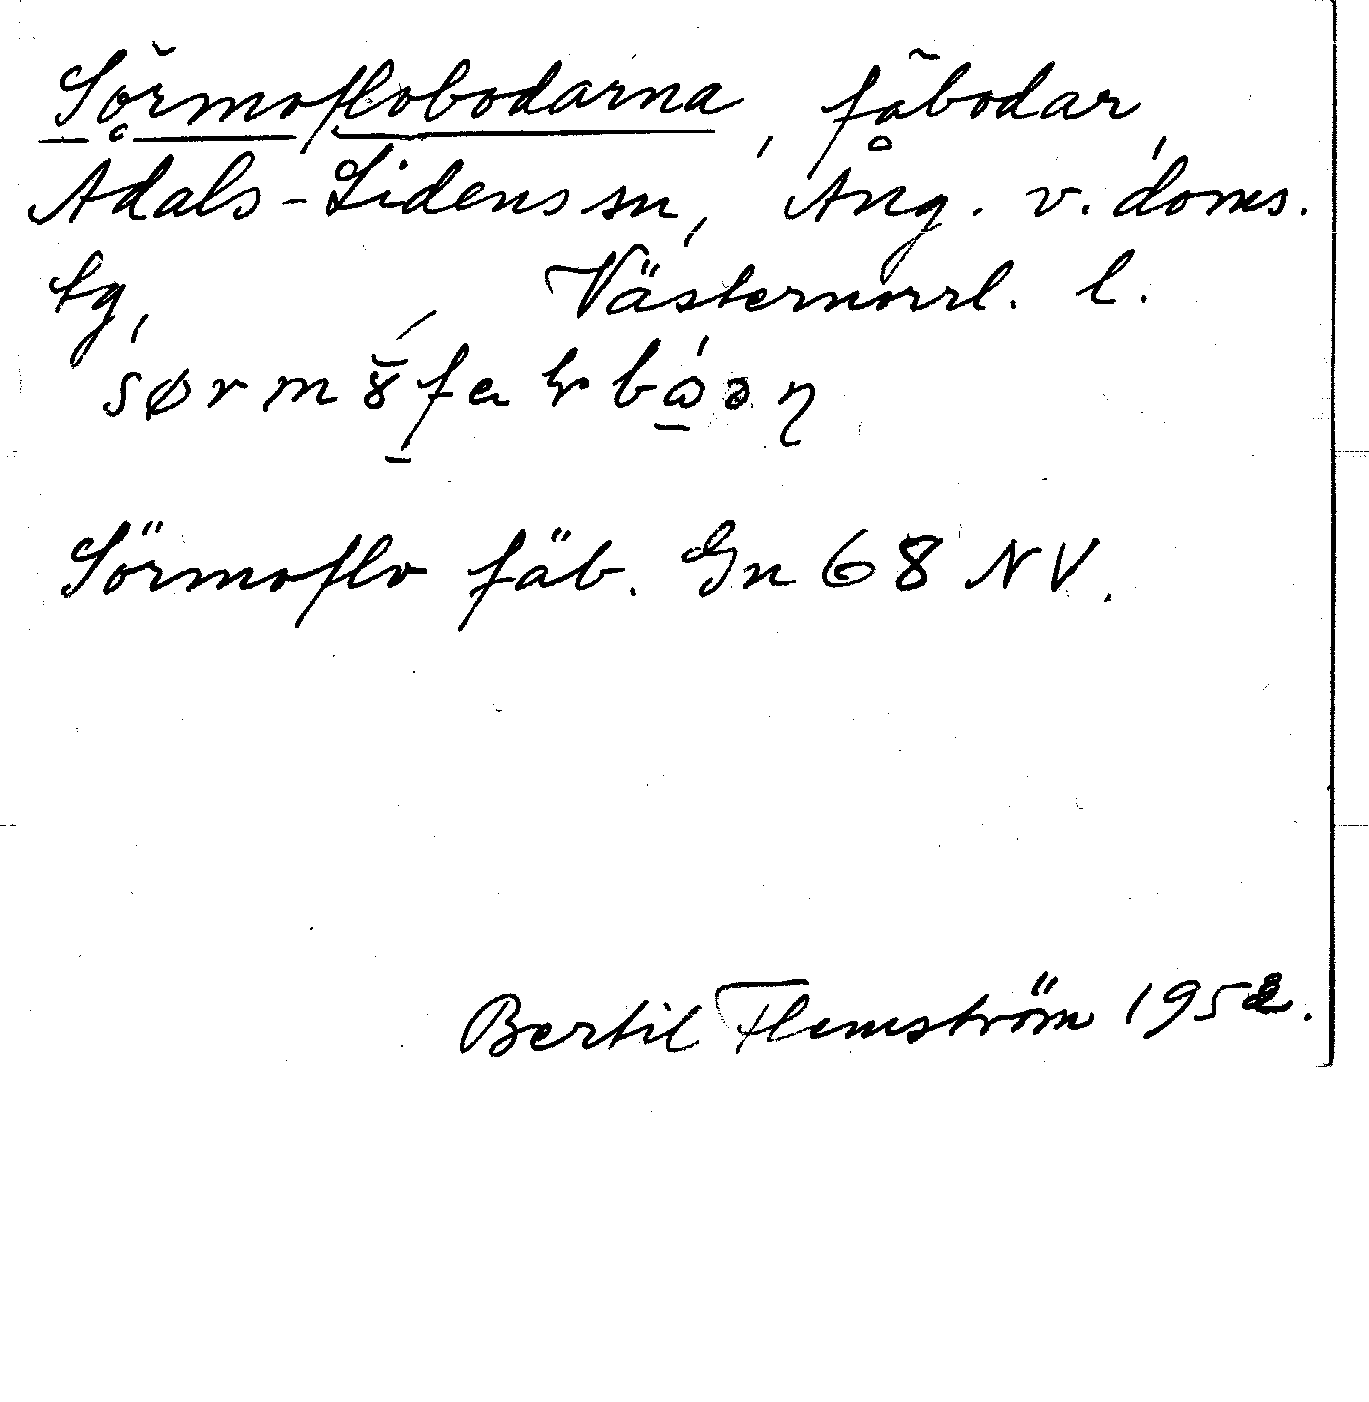 Sörmoflobodarna, fäbodar,
Ådals-Lidens sn, Ång. v. doms.
tg, Västernorrl. l.
Sörmoflo fäb. Gn 68 NV.
Bertil Flemström 1952.